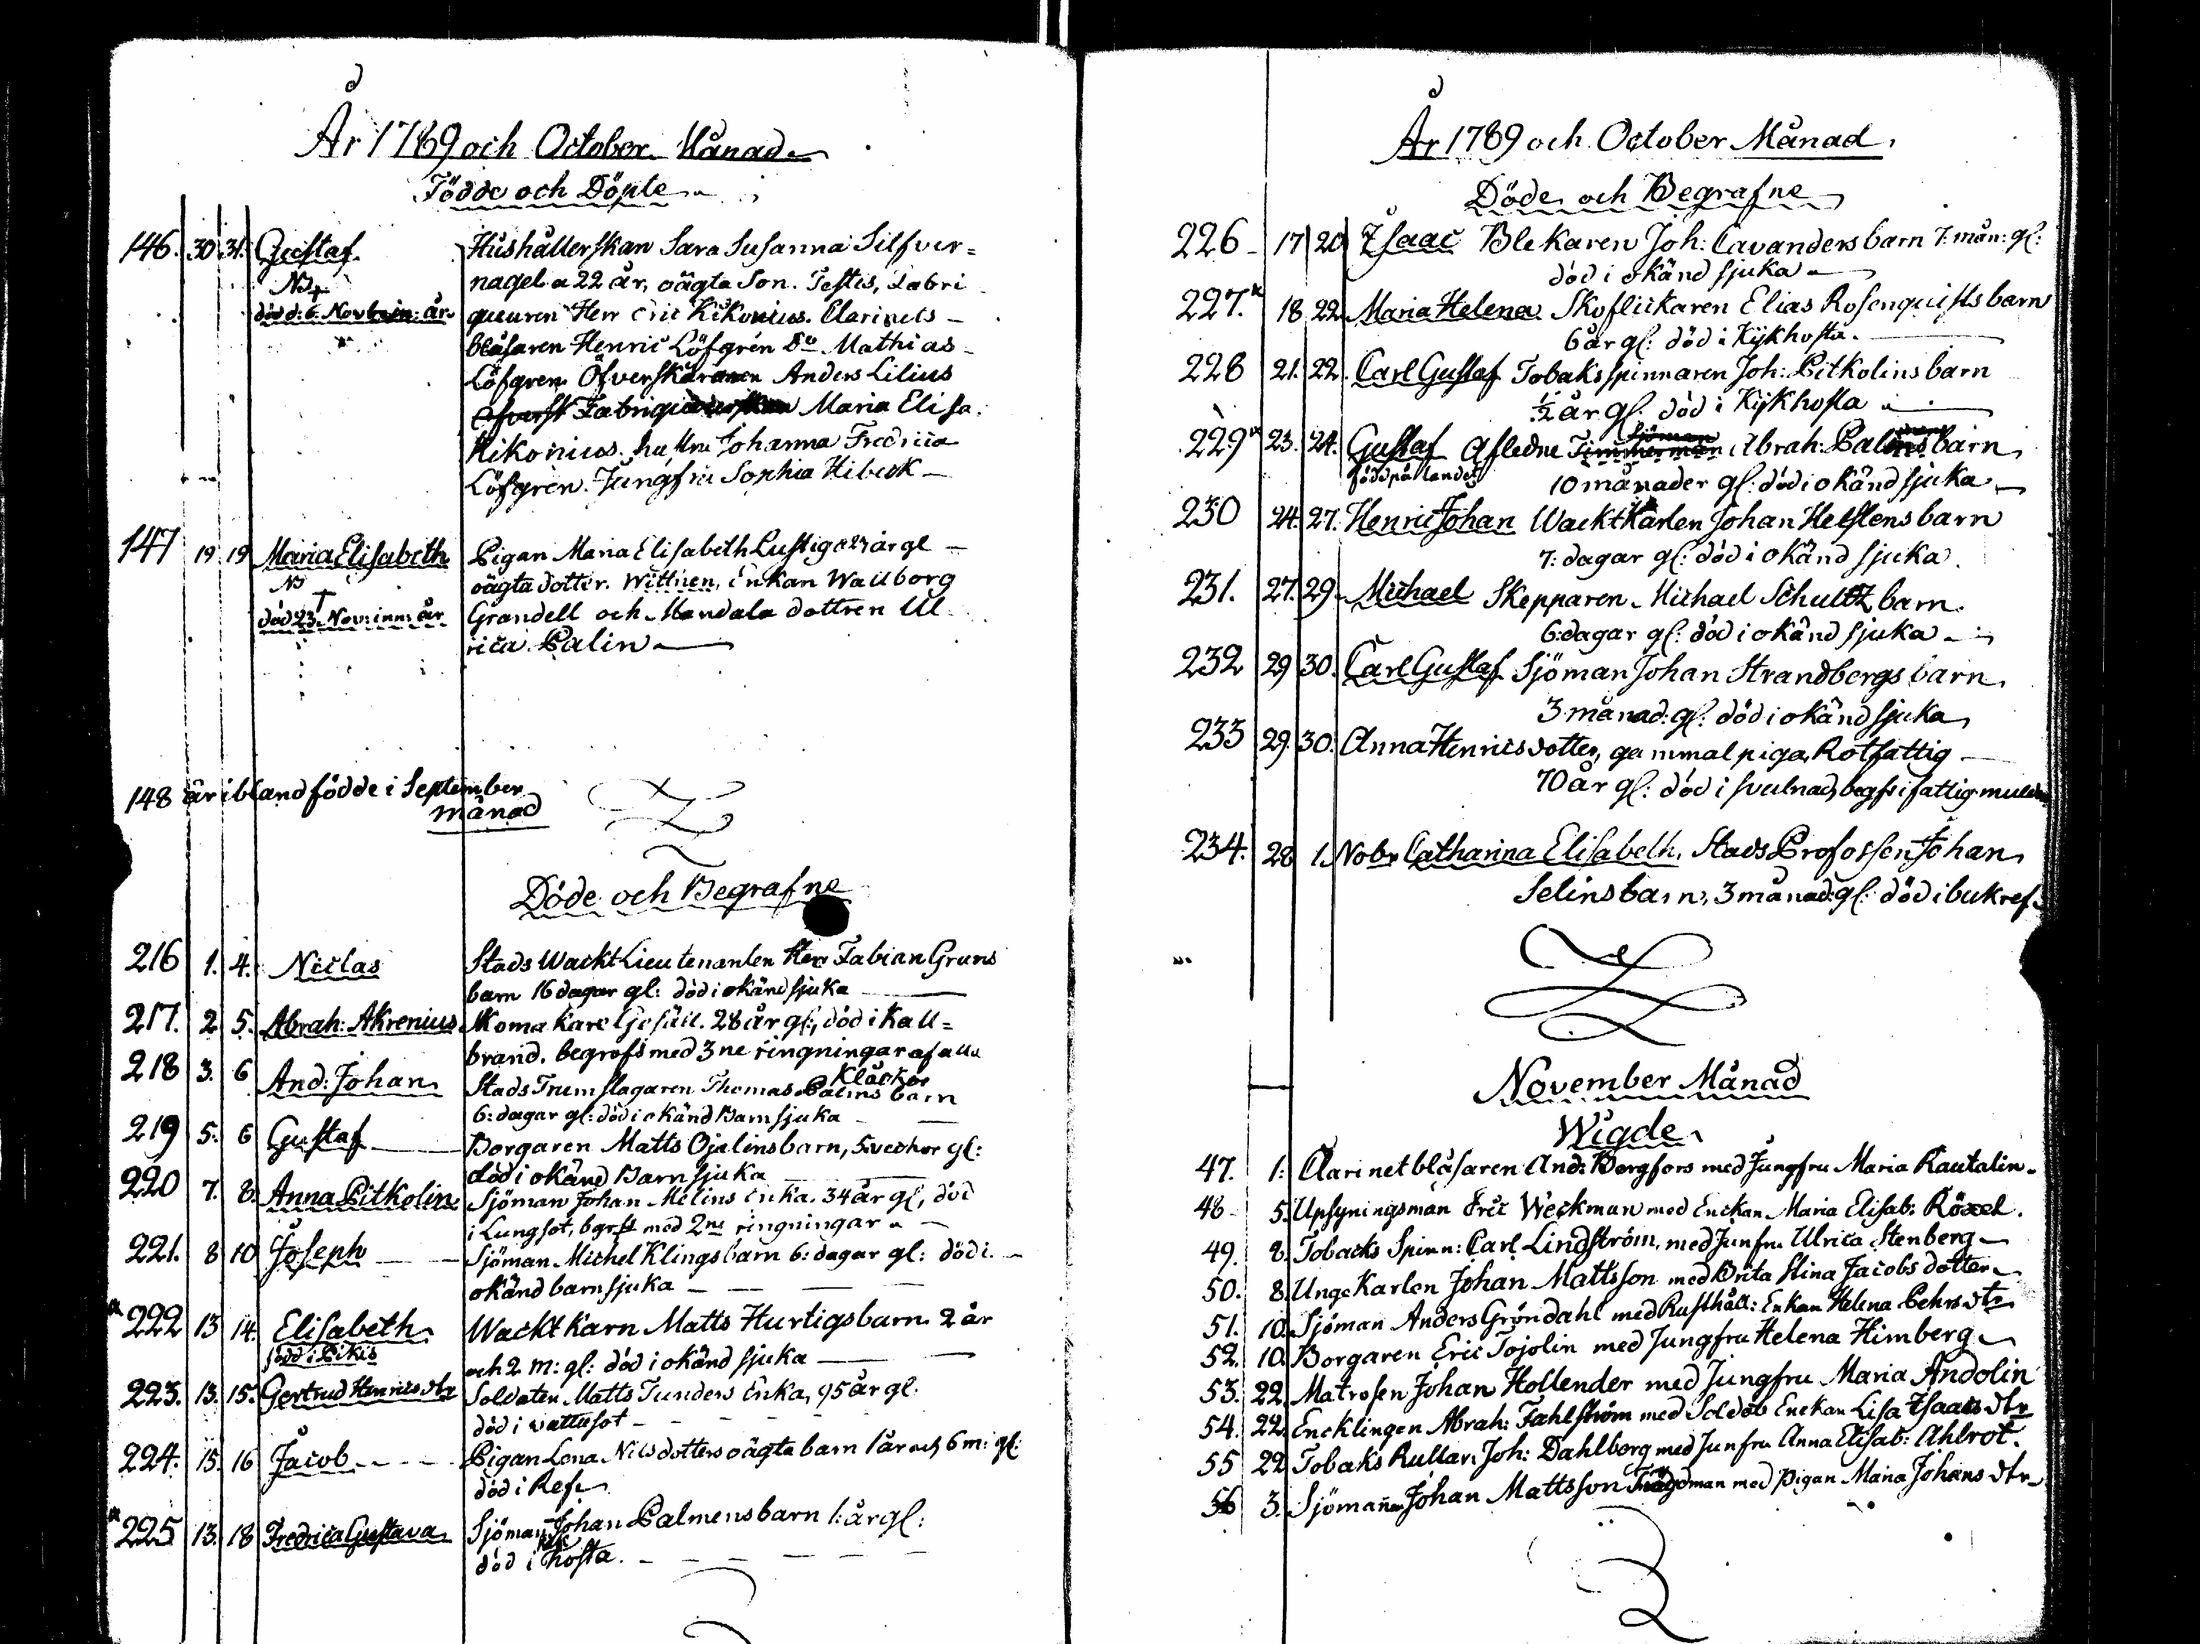 År 1789 och October Månad
Födde och Döpte
146. 30 31. Gustaf Hushållerskan Sara Susanna Silfver=
No + nagel a 22 år, oägta Son. Testis, Fabri
död d: 6 Novbr in: år queuren Herr Eric Kikonius. Clarinets
blåsaren Henric Löfgren Do Mathias
Löfgren Öfverskäraren Anders Lilius
Maria Elisa.
Kikonius. hustru Johanna Fredrica
Löfgren. Jungfru Sophia Hibeck
147 19 19 Maria Elisabeth Pigan Maria Elisabeth Lustig a 27 år gl
No + oägta dotter. Wittnen, Enkan Wallborg
död 23. Nov: inn: år Grandell och Mandals dottren Ul
rica Palin
148 är ibland födde i September
månad
Döde och Begrafne
216 1. 4. Niclas Stads Wackt Lieutenanten Herr Fabian Gruns
barn 16 dagar gl: död i okänd sjuka
217. 2 5. Abrah: Akrenius Skomakare Gesäll. 28 år gl:, död i Kall=
brand. begrofs med 3ne ringningar af alla
Kläckor
218 3. 6 And: Johan Stads Trumslagaren Thomas Palins barn
6: dagar gl: död i okänd Barnsjuka
219 5. 6 Gustaf Borgaren Matts Ojalins barn, 5 veckor gl:
död i okänd Barnsjuka
220 7. 8. Anna Pitkolin Sjöman Johan Melins Enka. 34 år gl, död
i Lungsot, bgrfs med 2ne ringningar
221. 8 10 Joseph Sjöman Michel Klings barn 6: dagar gl: död i
okänd barnsjuka
222 13 14. Elisabeth Wackt Karn Matts Hurtigs barn 2 år
född i Pikis och 2 m: gl: död i okänd sjuka
223. 13. 15. Gertrud Henricsdtr Soldaten Matts Tunders Enka, 95 år gl:
död i wattusot
224. 15. 16 Jacob Pigan Lena Nils dotters oägta barn 1 år och 6 m: gl:
död i Ref
225 13. 18 Fredrica Gustava Sjöman Johan Palmens barn 1: år gl:
död i hosta.
År 1789 och October Månad
Döde och Begrafne
226 17 20 Isaac Blekaren Joh: Cavanders barn 7: mån: gl:
död i okänd sjuka
227. 18 22 Maria Helena Skoflickaren Elias Rosenquists barn
6 år gl: död i Kijkhosta.
228 21. 22. Carl Gustaf Tobaks spinnaren Joh: Pitkolins barn
1/2 år gl: död i Kijkhosta
Sjöman
229 23. 24. Gustaf Afledne Timmerman Abrah: Palins barn
född på landet 10 månader gl: död i okänd sjuka
230 24. 27. Henric Johan Wackt Karlen Johan Hellstens barn
7: dagar gl: död i okänd sjuka
231. 27. 29 Michael Skepparen Michael Schultz barn
6: dagar gl: död i okänd sjuka
232 29 30. Carl Gustaf Sjöman Johan Strandbergs barn
3 månad: gl: död i okänd sjuka
233 29. 30. Anna Henrics dotter, gammal piga, Rotfattig
70 år gl: död i svulnad, begfs i fattigmullen
234. 28 1. Nobr Catharina Elisabeth. Stads Profossen Johan
Selins barn, 3 månad: gl: död i bukref.
November Månad
Wigde
47. 1: Clarinetblåsaren And: Bergfors med Jungfru Maria Rautalin
48 5. Upsyningsman Eric Weckman med Enckan Maria Elisab: Röxel.
49. 8. Tobacks Spinn: Carl Lindström, med Junfru Ulrica Stenberg
50. 8. Unge Karlen Johan Mattsson med Brita Stina Jacobs dotter
51. 10. Sjöman Anders Gröndahl med Rusthåll: Enkan Helena Pehrs dtr
52. 10. Borgaren Eric Tojolin med Jungfru Helena Himberg
53. 22. Matrosen Johan Hollender med Jungfru Maria Andolin
54. 22. Encklingen Abrah: Fahlström med Soldat Enckan Lisa Isaacs dtr
55 22 Tobaks Rullar: Joh: Dahlberg med Junfru Anna Elisab: Ahlrot.
56 3. Sjömañen Johan Mattsson med Pigan Maria Johans dtr